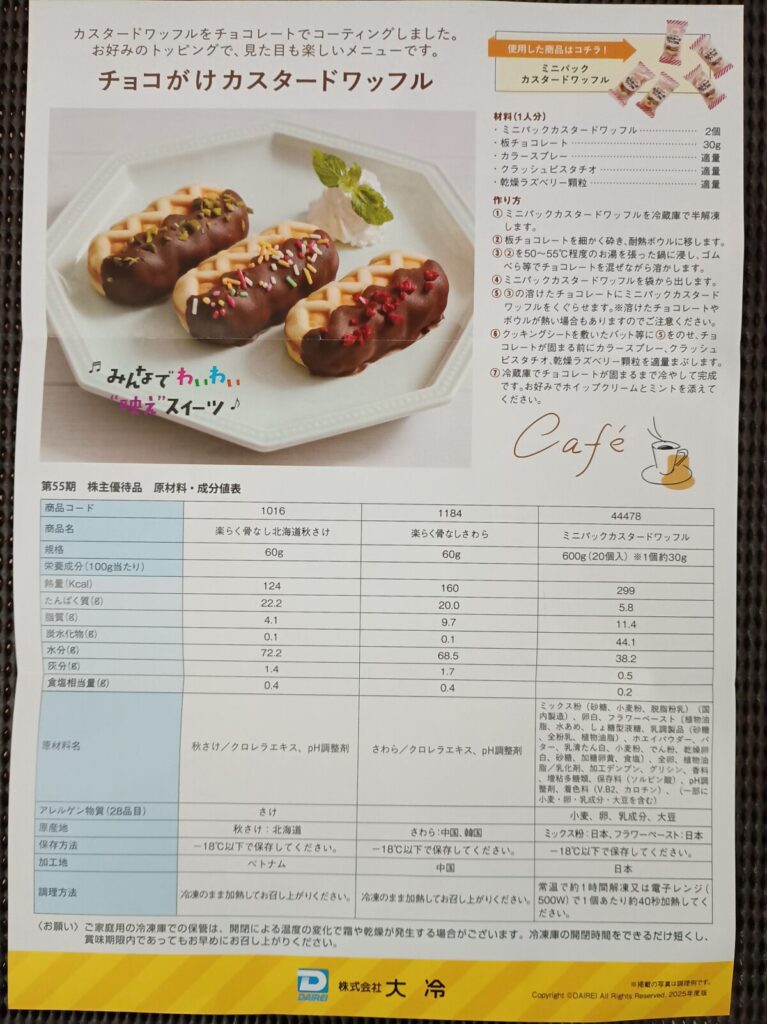 カスタードワッフルをチョコレートでコーティングしました。
お好みのトッピングで、見た目も楽しいメニューです。
チョコがけカスタードワッフル
使用した商品はコチラ!
ミニパック
カスタードワッフル
材料(1人分)
・ミニパックカスタードワッフル……………… 2個
・板チョコレート……………… 30g
・カラースプレー……………… 適量
・クラッシュピスタチオ……………… 適量
・乾燥ラズベリー顆粒……………… 適量
作り方
①ミニパックカスタードワッフルを冷蔵庫で半解凍
します。
②板チョコレートを細かく砕き、耐熱ボウルに移します。
③②を50〜55℃程度のお湯を張った鍋に浸し、ゴム
べら等でチョコレートを混ぜながら溶かします。
④ミニパックカスタードワッフルを袋から出します。
⑤③の溶けたチョコレートにミニパックカスタード
ワッフルをくぐらせます。※溶けたチョコレートや
ボウルが熱い場合もありますのでご注意ください。
⑥クッキングシートを敷いたバット等に⑤をのせ、チョ
コレートが固まる前にカラースプレー、クラッシュ
ピスタチオ、乾燥ラズベリー顆粒を適量まぶします。
⑦冷蔵庫でチョコレートが固まるまで冷やして完成
です。お好みでホイップクリームとミントを添えて
ください。
♬みんなでわいわい
"映え"スイーツ♪
Café
第55期 株主優待品 原材料・成分値表
商品コード 1016 1184 44478
商品名 楽らく骨なし北海道秋さけ 楽らく骨なしさわら ミニパックカスタードワッフル
規格 60g 60g 600g(20個入)※1個約30g
栄養成分(100g当たり)
熱量(Kcal) 124 160 299
たんぱく質(g) 22.2 20.0 5.8
脂質(g) 4.1 9.7 11.4
炭水化物(g) 0.1 0.1 44.1
水分(g) 72.2 68.5 38.2
灰分(g) 1.4 1.7 0.5
食塩相当量(g) 0.4 0.4 0.2
原材料名 秋さけ/クロレラエキス、pH調整剤 さわら/クロレラエキス、pH調整剤
ミックス粉(砂糖、小麦粉、脱脂粉乳)(国
内製造)、卵白、フラワーペースト〔植物油
脂、水あめ、しょ糖型液糖、乳調製品(砂糖
、全粉乳、植物油脂)、ホエイパウダー、バ
ター、乳清たん白、小麦粉、でん粉、乾燥卵
白、砂糖、加糖卵黄、食塩〕、全卵、植物油
脂/乳化剤、加工デンプン、グリシン、香料
、増粘多糖類、保存料(ソルビン酸)、pH調
整剤、着色料(V.B2、カロチン)、(一部に
小麦・卵・乳成分・大豆を含む)
アレルゲン物質(28品目) さけ 小麦、卵、乳成分、大豆
原産地 秋さけ:北海道 さわら:中国、韓国 ミックス粉:日本、フラワーペースト:日本
保存方法 −18℃以下で保存してください。 −18℃以下で保存してください。 −18℃以下で保存してください。
加工地 ベトナム 中国 日本
調理方法 冷凍のまま加熱してお召し上がりください。 冷凍のまま加熱してお召し上がりください。
常温で約1時間解凍又は電子レンジ(
500W)で1個あたり約40秒加熱してく
ださい。
〈お願い〉ご家庭用の冷凍庫での保管は、開閉による温度の変化で霜や乾燥が発生する場合がございます。冷凍庫の開閉時間をできるだけ短くし、
賞味期限内であってもお早めにお召し上がりください。
DAIREI 株式会社 大冷
※掲載の写真は調理例です。
Copyright ©DAIREI All Rights Reserved. 2025年度版